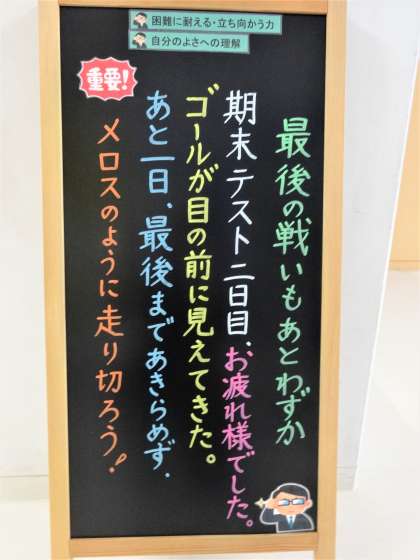 困難に耐える・立ち向かう力
自分のよさへの理解
重要!
最後の戦いもあとわずか
期末テスト二日目、お疲れ様でした。
ゴールが目の前に見えてきた。
あと一日、最後まであきらめず、
メロスのように走り切ろう!